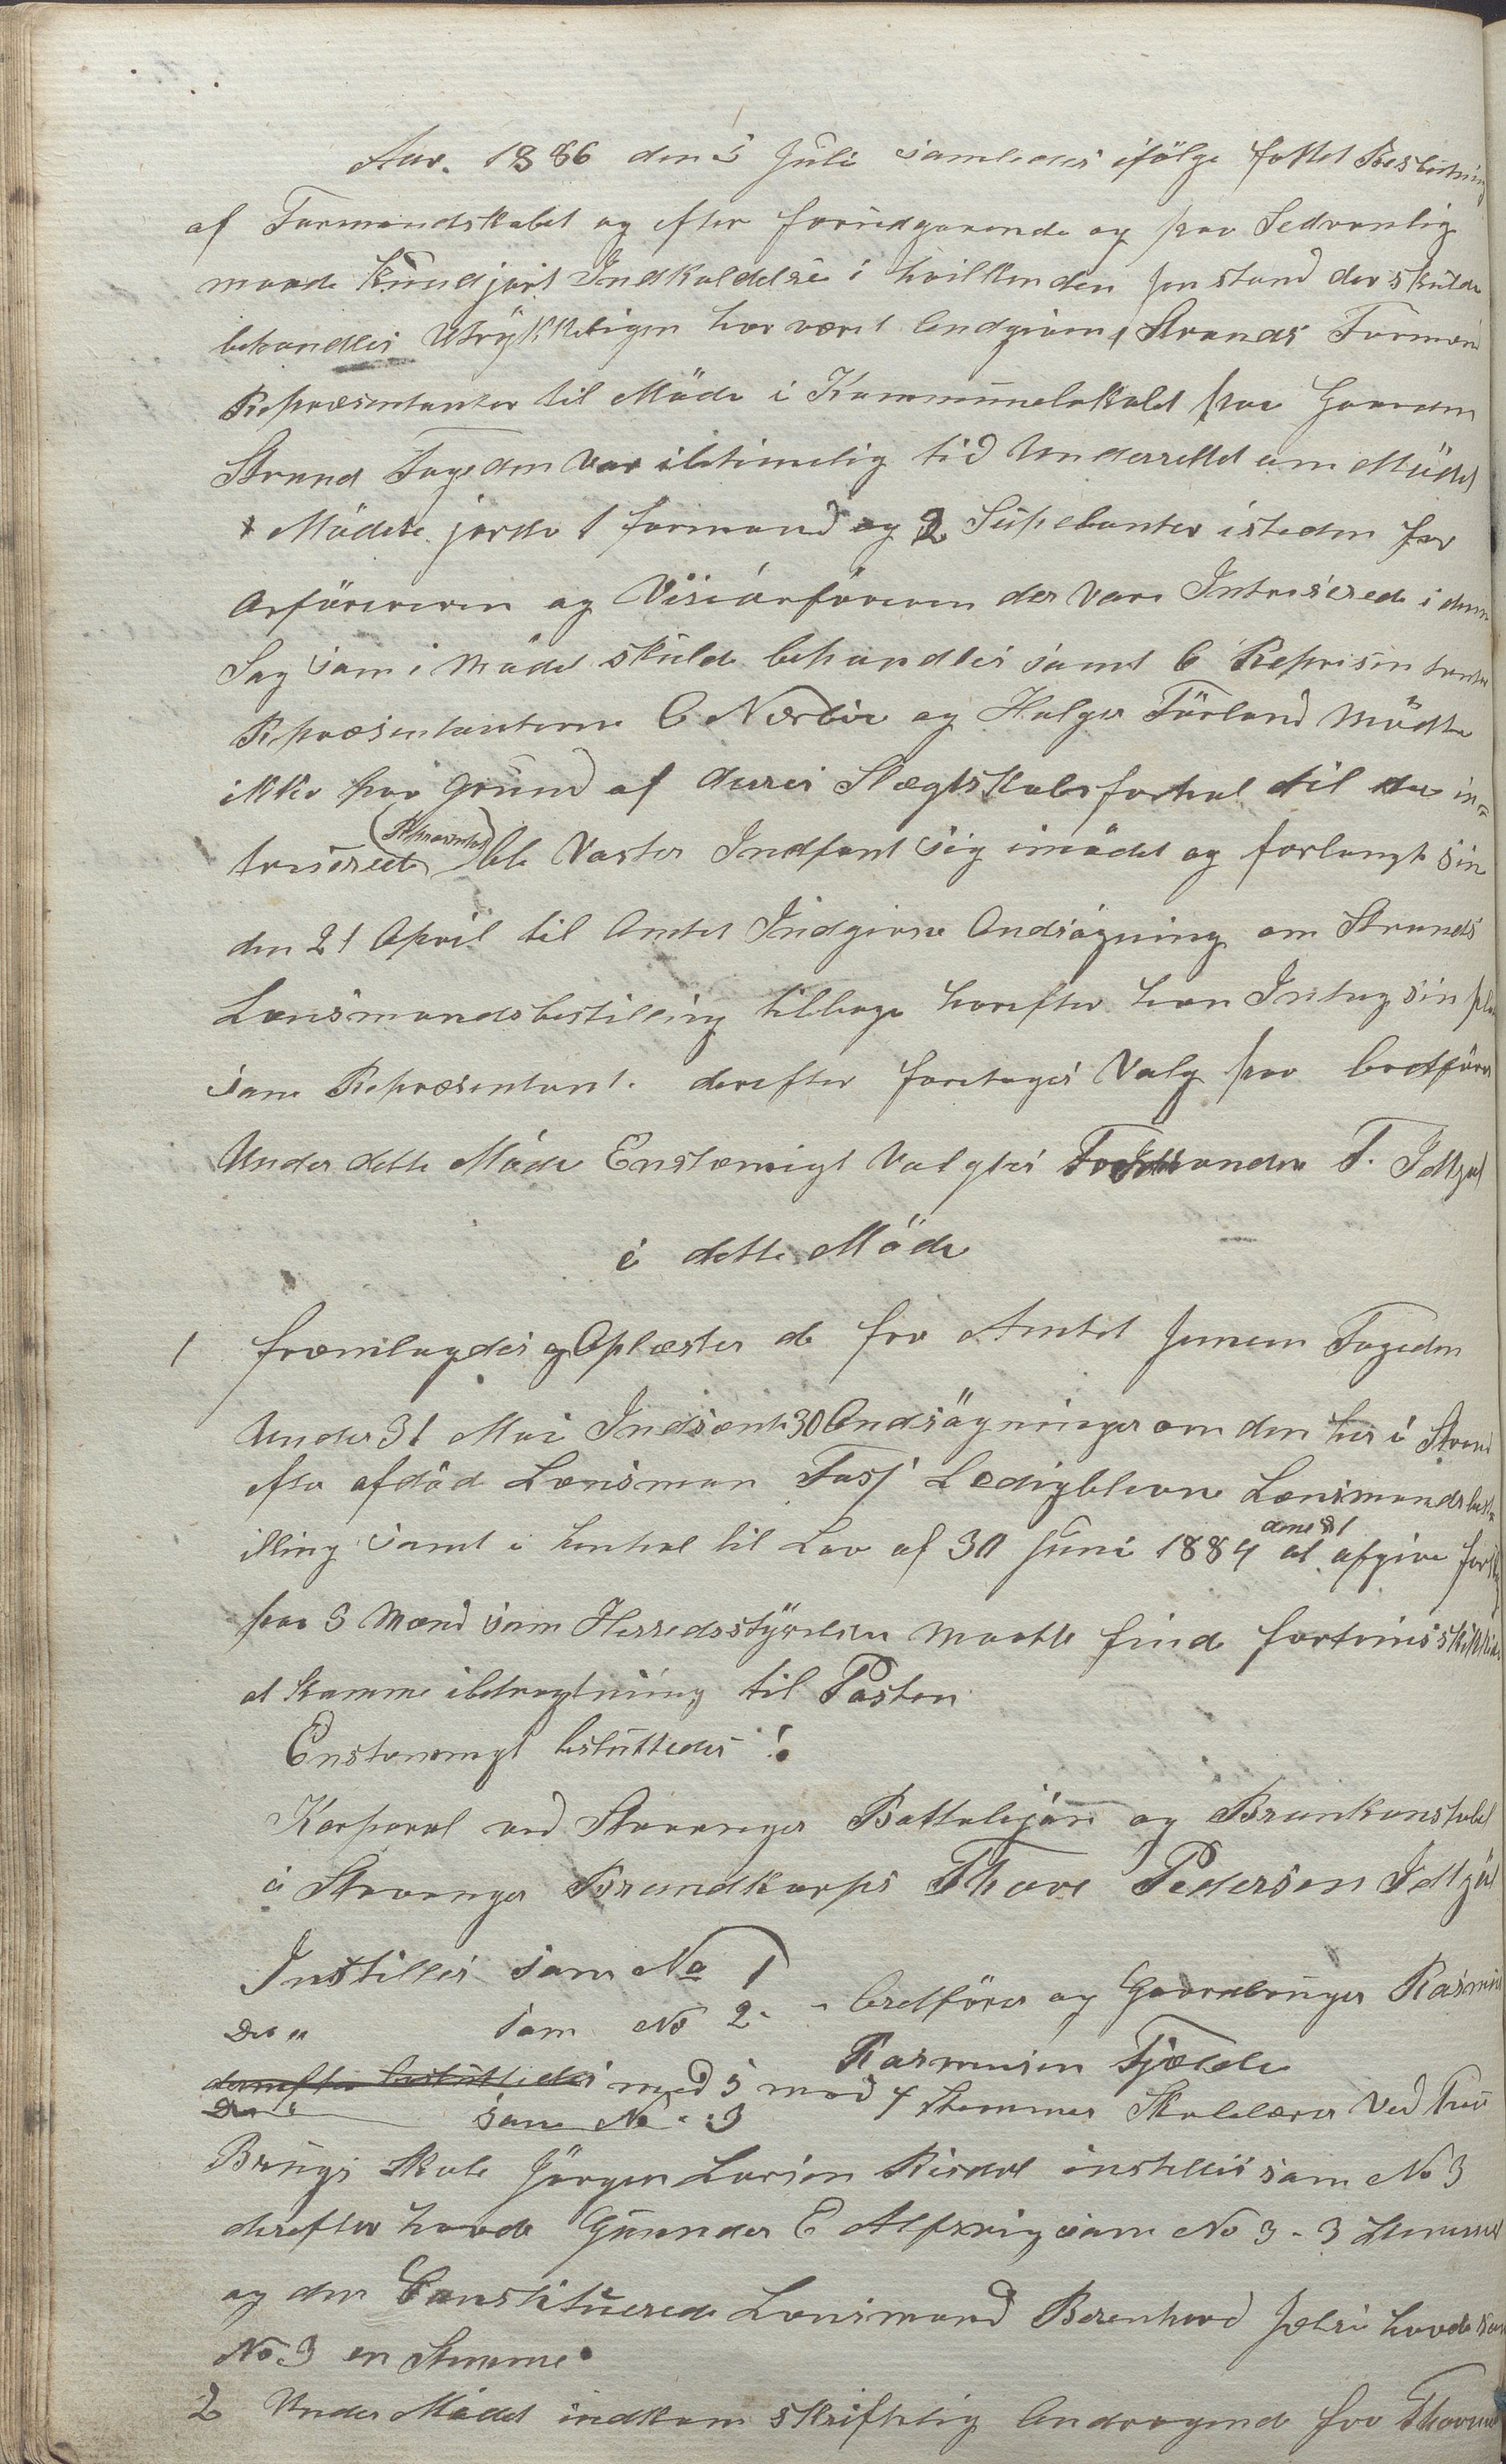 Aar. 1886 den 5 Juli samledes ifölge fattet Beslutning
af Formandskabet og efter forudgaaende og paa Sedvanlig
maade Kundjort Indkaldelse i hvilken den stand der skulde
behandles Utrykkeligen har været Andgiven, Strands Formænd
Repræsentanter til Möde i Kommunelokalet paa Gaarden
Strand Fogeden Var ibetimelig tid Underrettet om Mödet
Mödete jorde 1 formand og 2 Supebanter isteden for
Orföreren og Viseorföreren der Vare Intreserede i denne
Sag som i Mödet skulde behandles samt 6 Represintanter
Repræsentanterne C Nærböe og Holger Törland Mödte
ikke paa Grund af deres Slægtskabsforhol til de in=
treserede, Ole Vaster Indfant sig imödet og forlangte sin
den 21 April til Amtet Indgivne Andsögning om Strands
Lensmandsbestilling tilbage horefter han Intog sin plas
som Repræsentant. derefter foretoges Valg paa Ordförer
Under dette Möde Enstemigt Valgtes Formanden T. Idtzöl
i dette Möde
1 fremlagdes og Oplæstes de fra Amtet Jenem Fogeden
Under 31 Mai Indsente 30 Andsögninger om den her i Strand
efter afdöd Lensman Fass Ledigblevne Lensmandsbest=
illing samt i henhol til Lov af 30 Juni 1884 at afgive forslag
paa 3 Mænd som Herredsstyrelsen maatte finde fortrinsskikkede
at komme ibetragtning til Posten
Enstemmigt besluttedes :
Korporal ved Stavanger Battaljon og Brankonstabel
i Stavanger Brandkorps Thore Pedersen Idtzöl
Instilles som No 1
Do " som No 2. - Ordförer og Gaardbruger Rasmus
Rasmusen Fjælde
derrefter besluttedes med 5 mod 4 stemmer Skolelærer Ved Tau
Do " som No 3
Brugs Skole Jörgen Larsen Risdal instilles som No 3
derefter havde Gunder E Alfsvig som No 3 - 3 Stemmer
og den Constituerede Lensmand Berenhard Jelse havde som
No 3 en Stemme.
2 Under Mödet indkom skriftelig Andragende fra Thorvel